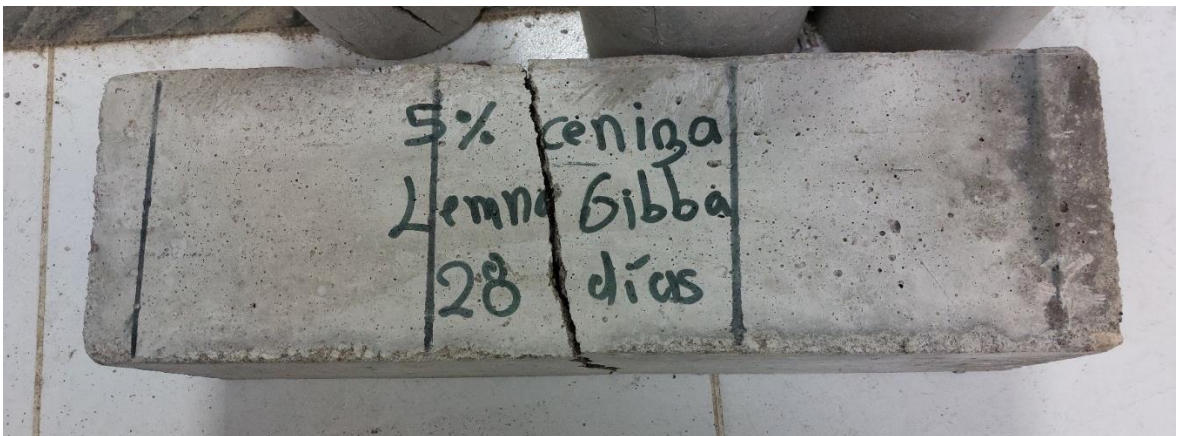 5% ceniza
Lemna Gibba
28 días